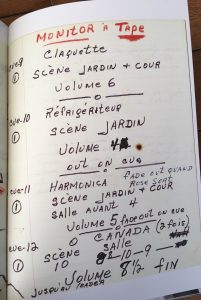 MONITOR À TAPE
Claquette
cue-9
① SCÈNE JARDIN + COUR
VOLUME 6
cue-10 RÉFRIGÉRATEUR
① SCÈNE JARDIN
VOLUME 4
OUT ON CUE
cue-11 HARMONICA FADE OUT QUAND ROSE SORT
① SCÈNE JARDIN + COUR
SALLE AVANT 4
VOLUME 5 FADE OUT ON CUE
cue-12 O CANADA (2 fois)
① SCÈNE SALLE
10 8-10-9
VOLUME 8½ FIN
JUSQU'AU